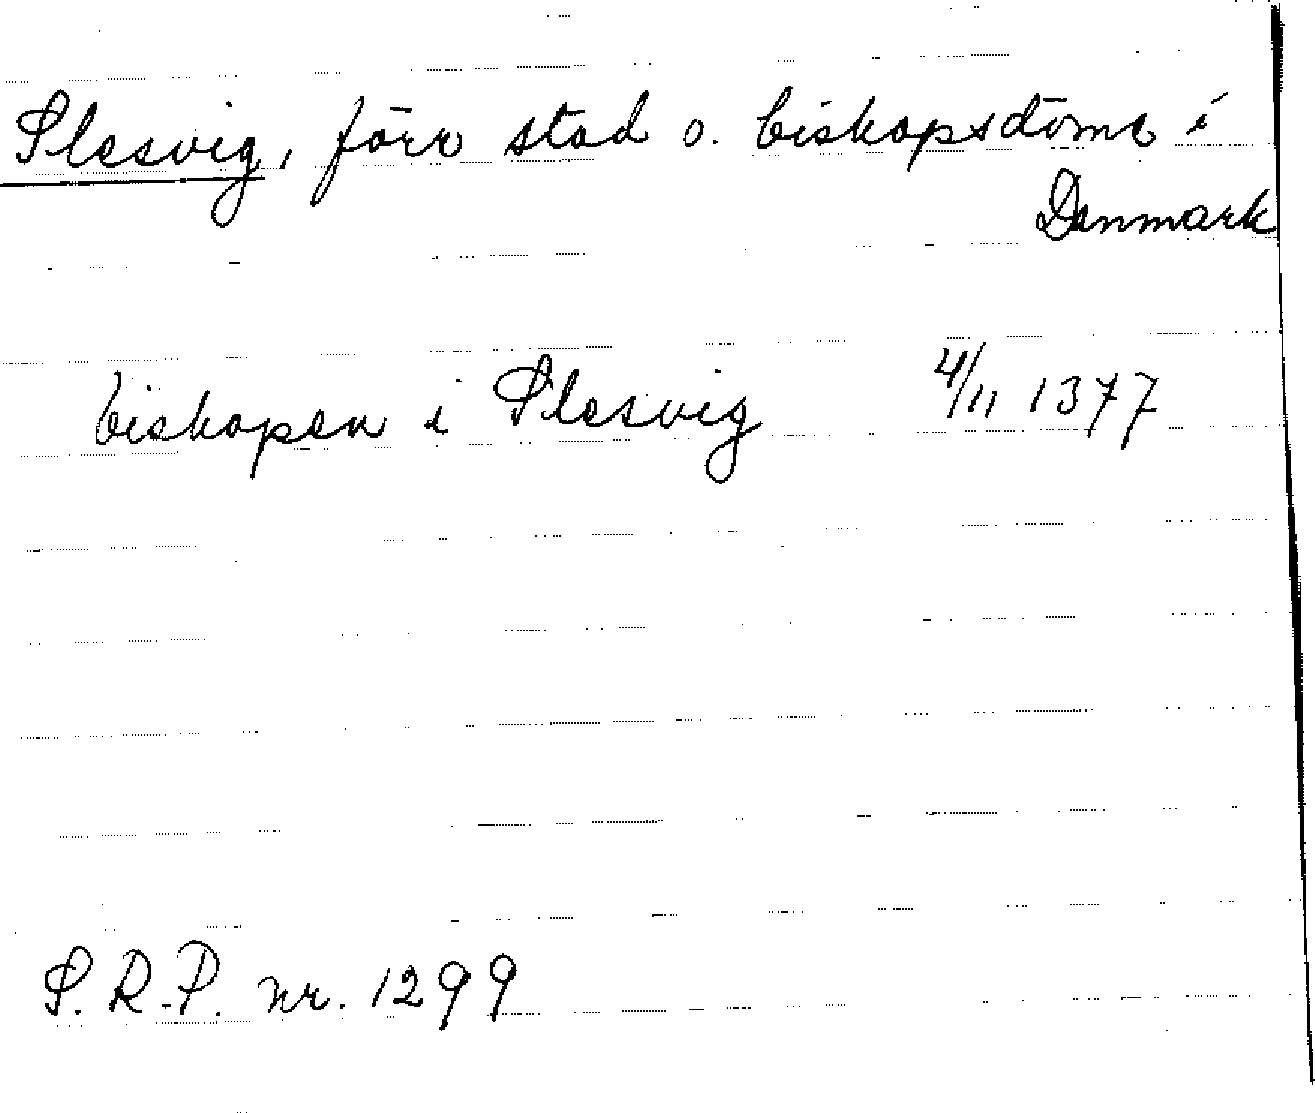 Slesvig, förr stad o. biskopsdöme i
Danmark
biskopen i Slesvig 4/11 1377
S.R.P. nr. 1299